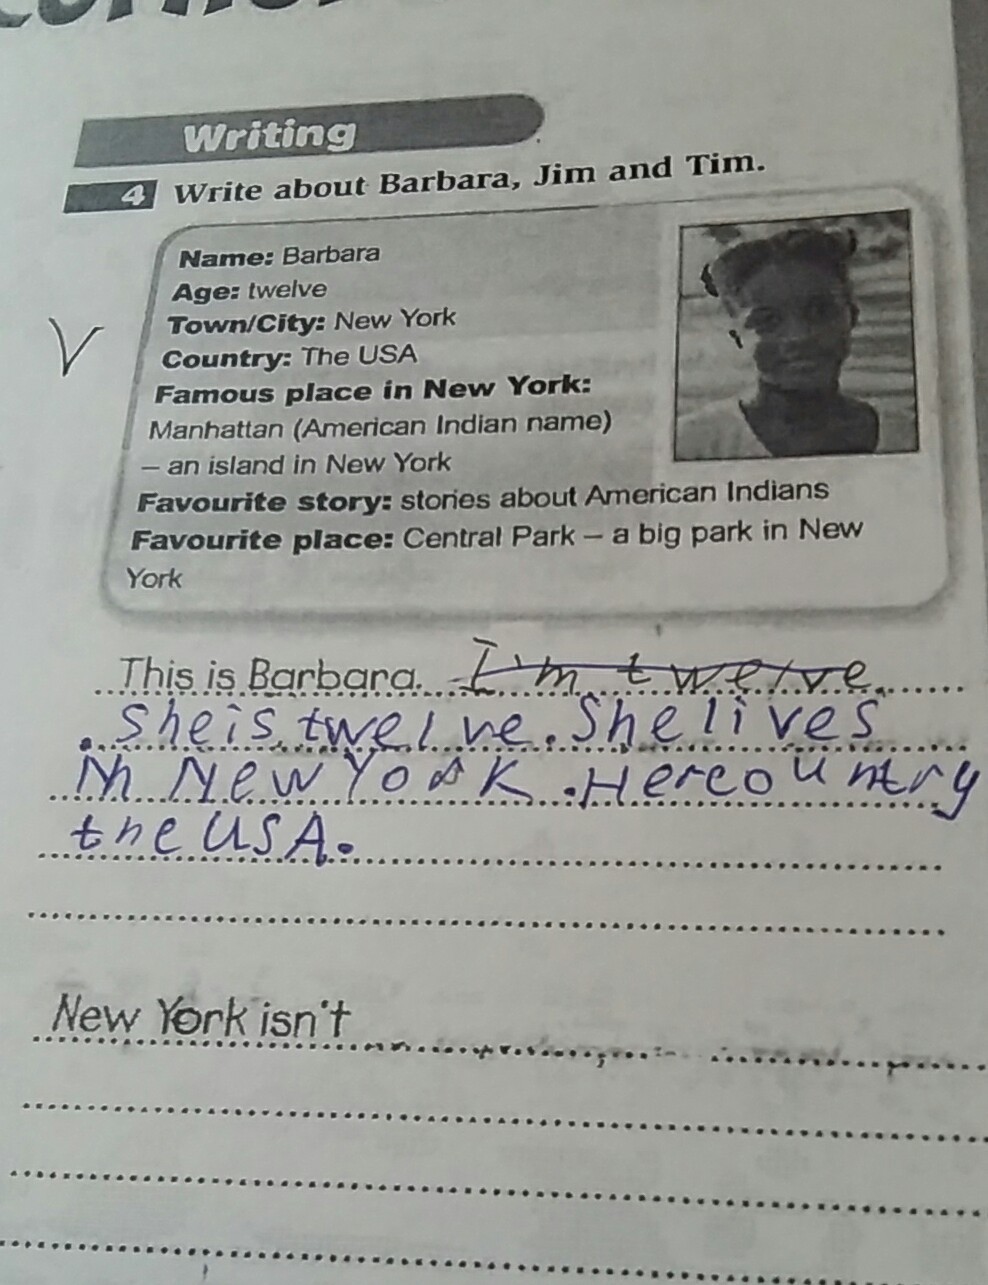 Writing
4 Write about Barbara, Jim and Tim.
Name: Barbara
Age: twelve
Town/City: New York
Country: The USA
Famous place in New York:
Manhattan (American Indian name)
– an island in New York
Favourite story: stories about American Indians
Favourite place: Central Park – a big park in New
York
This is Barbara. I'm twelve
She is twelve. She lives
in New York. Her country
the USA.
New York isn't